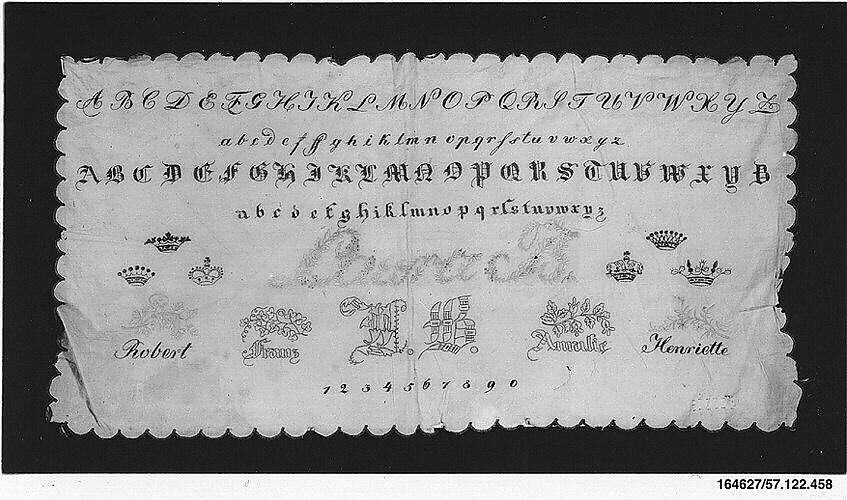 A B C D E F G H I K L M N O P Q R S T U V W X Y Z
a b c d e f ff g h i k l m n o p q r ſ s t u v w x y z
A B C D E F G H I K L M N O P Q R S T U V W X Y Z
a b c d e f g h i k l m n o p q r ſ s t u v w x y z
Robert Franz Henriette
1 2 3 4 5 6 7 8 9 0
164627/57.122.458